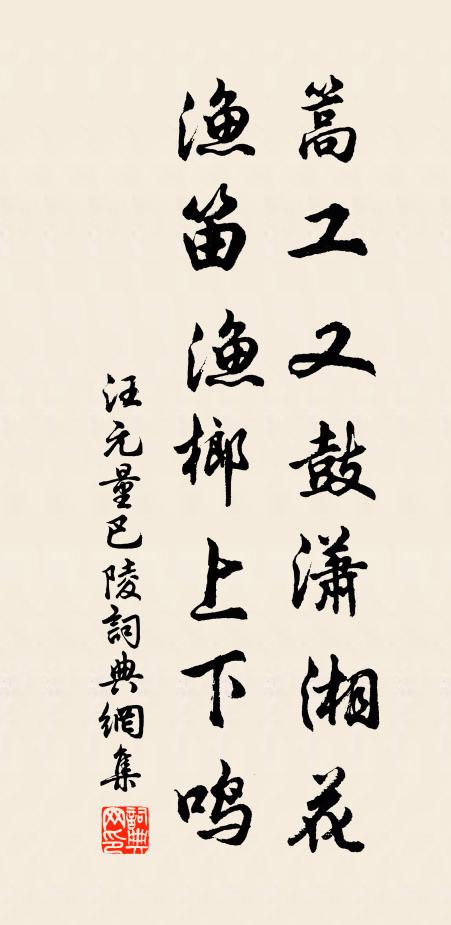 篙工又鼓潇湘花
渔笛渔榔上下鸣
汪元量巴陵詞典網集
詞典網印